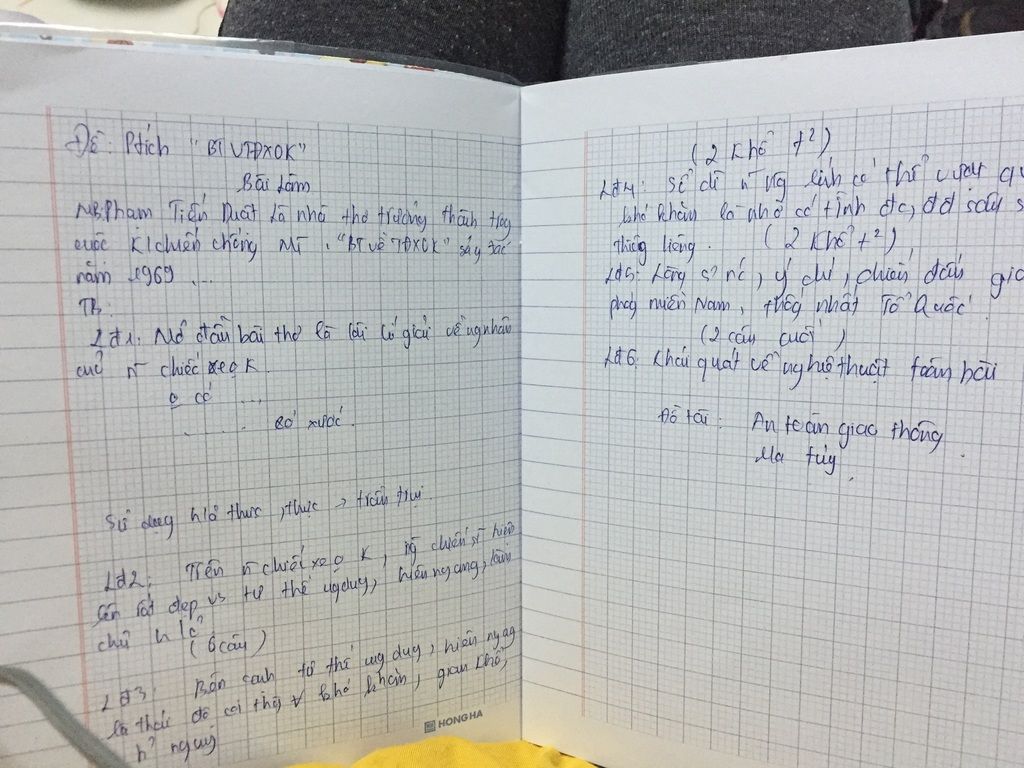 Đề: Ptích "BT VTĐXOK"
Bài làm
MB: Phạm Tiến Duật là nhà thơ trưởng thành trog
cuộc k/chiến chống Mĩ. "BT về TĐXOK" sáng tác
năm 1969 ...
TB:
Lđ1: Mở đầu bài thơ là lời lí giải về ng nhân
của n chiếc xe o K.
o có ...
. . . . . . bơ xước.
Sử dụng h/ả thực, thực → trần trụi
Lđ2: Trên n chiếc xe o K, ng chiến sĩ hiện
lên rất đẹp vs tư thế ung dung, hiên ngang, làm
chủ h/c
(6 câu)
Lđ3: Bên cạnh tư thế ung dung, hiên ngag
là thái độ coi thg khó khăn, gian khổ,
h' nguy
HONG HA
(2 khổ t²)
Lđ4: Sở dĩ n ng lính có thể vượt qu
khó khăn là nhờ có tình đc, đ đ sâu s
thiêg liêng. (2 khổ t²)
Lđ5: Lòng y nc, ý chí, chiến đấu giả
phóg miền Nam, thốg nhất Tổ Quốc.
(2 câu cuối)
Lđ6: Khái quát về nghệ thuật toàn bài
Đề tài: An toàn giao thông
Ma túy.